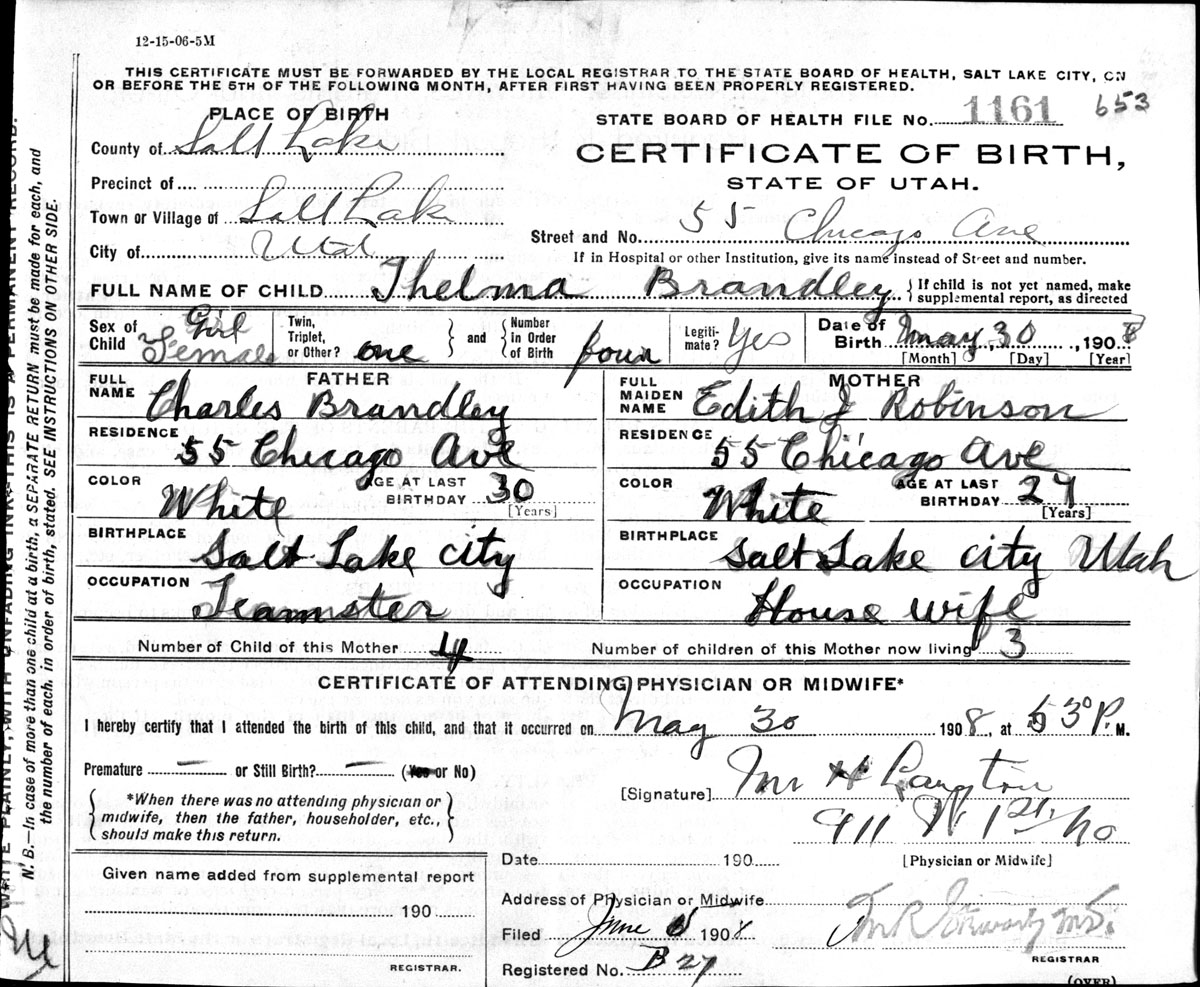 12-15-06-5M
THIS CERTIFICATE MUST BE FORWARDED BY THE LOCAL REGISTRAR TO THE STATE BOARD OF HEALTH, SALT LAKE CITY, ON
OR BEFORE THE 5TH OF THE FOLLOWING MONTH, AFTER FIRST HAVING BEEN PROPERLY REGISTERED.
PLACE OF BIRTH
STATE BOARD OF HEALTH FILE No. 1161 653
County of Salt Lake
CERTIFICATE OF BIRTH,
STATE OF UTAH.
Precinct of
Town or Village of Salt Lake
Street and No. 55 Chicago Ave
City of Utah
If in Hospital or other Institution, give its name instead of Street and number.
FULL NAME OF CHILD Thelma Brandley { If child is not yet named, make
supplemental report, as directed
Sex of Child Girl Female Twin, Triplet, or Other? one } and { Number in Order of Birth four Legitimate? Yes Date of Birth May, 30, 1908
[Month] [Day] [Year]
FATHER
FULL NAME Charles Brandley
RESIDENCE 55 Chicago Ave
COLOR White AGE AT LAST BIRTHDAY 30
[Years]
BIRTHPLACE Salt Lake City
OCCUPATION Teamster
MOTHER
FULL MAIDEN NAME Edith J Robinson
RESIDENCE 55 Chicago Ave
COLOR White AGE AT LAST BIRTHDAY 27
[Years]
BIRTHPLACE Salt Lake City Utah
OCCUPATION House wife
Number of Child of this Mother 4 Number of children of this Mother now living 3
CERTIFICATE OF ATTENDING PHYSICIAN OR MIDWIFE*
I hereby certify that I attended the birth of this child, and that it occurred on May 30 1908, at 5 30 P. M.
Premature — or Still Birth? — (Yes or No)
{ *When there was no attending physician or
midwife, then the father, householder, etc.,
should make this return. }
[Signature] H Langton
911 W 1st No
Date 190
[Physician or Midwife]
Given name added from supplemental report
190
REGISTRAR.
Address of Physician or Midwife
Filed June 1908
REGISTRAR
Registered No. B 27
(OVER)
WRITE PLAINLY, WITH UNFADING INK—THIS IS A PERMANENT RECORD.
N. B.—In case of more than one child at a birth, a SEPARATE RETURN must be made for each, and
the number of each, in order of birth, stated. SEE INSTRUCTIONS ON OTHER SIDE.